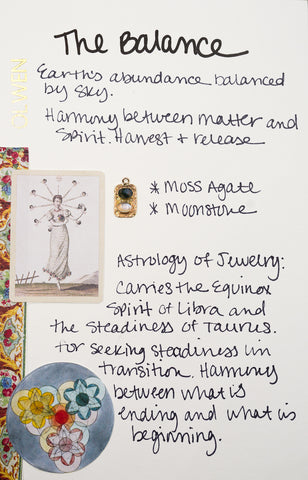 The Balance
Earth's abundance balanced
by Sky.
Harmony between matter and
Spirit. Harvest + release
* Moss Agate
* Moonstone
Astrology of Jewelry:
Carries the Equinox
Spirit of Libra and
the Steadiness of Taurus.
For seeking steadiness in
transition. Harmony
between what is
ending and what is
beginning.